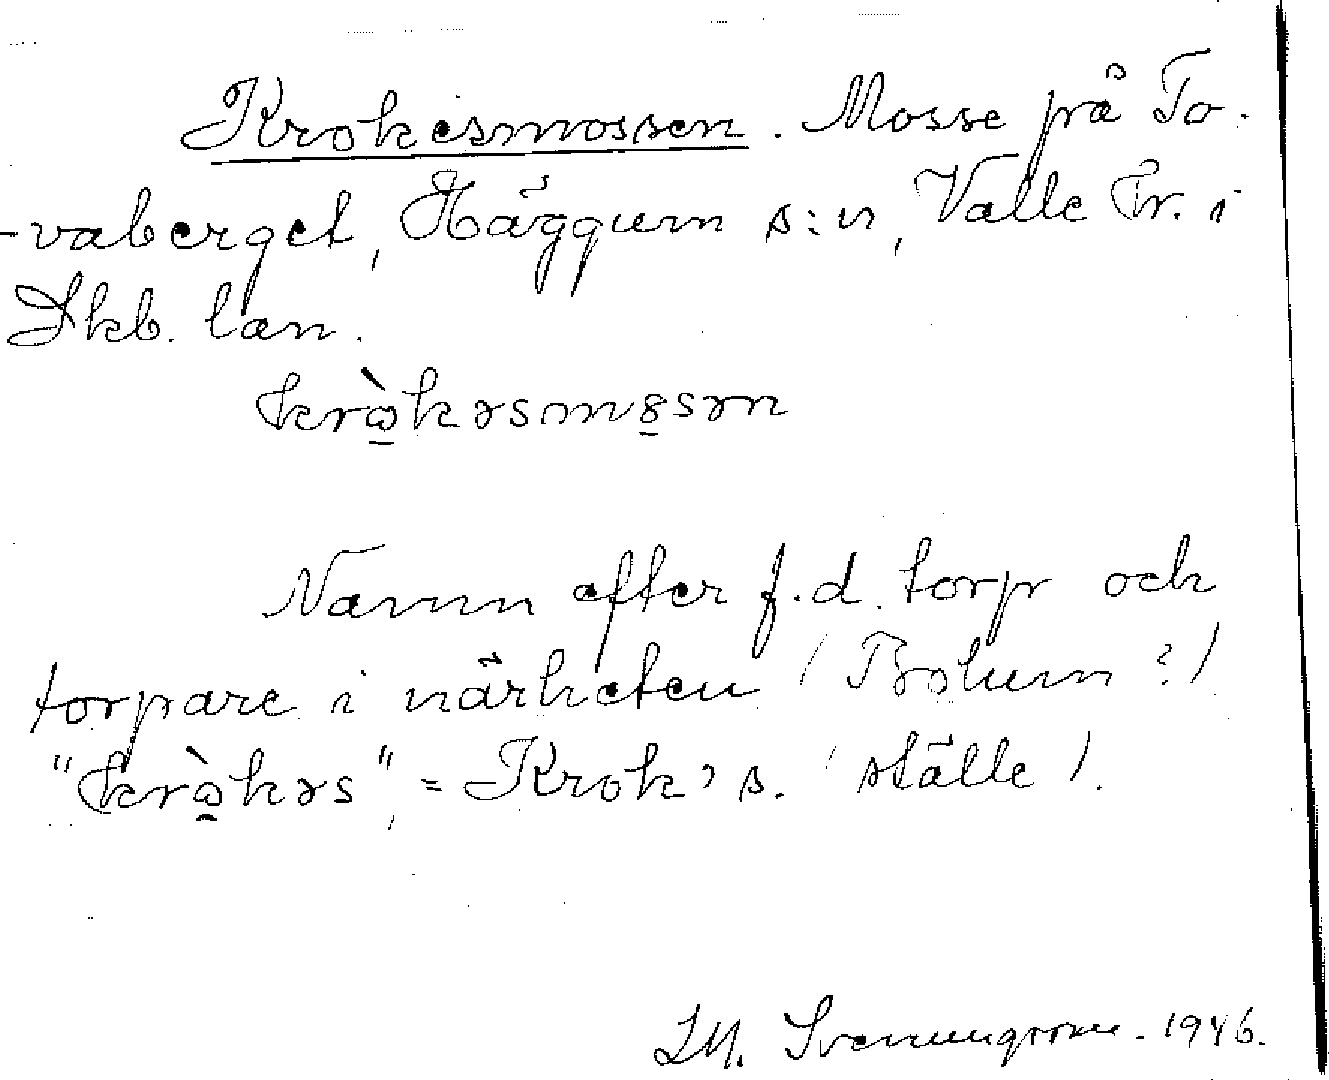 Krokesmossen. Mosse på To-
-vaberget, Häggum s:n, Valle Hr. i
Skb. län.
krὼkəsmɞsən
Namn efter f.d. torp och
torpare i närheten (Bolum?)
"krὼkəs", = Krok's. (ställe).
I.M. Svennungsson. 1946.